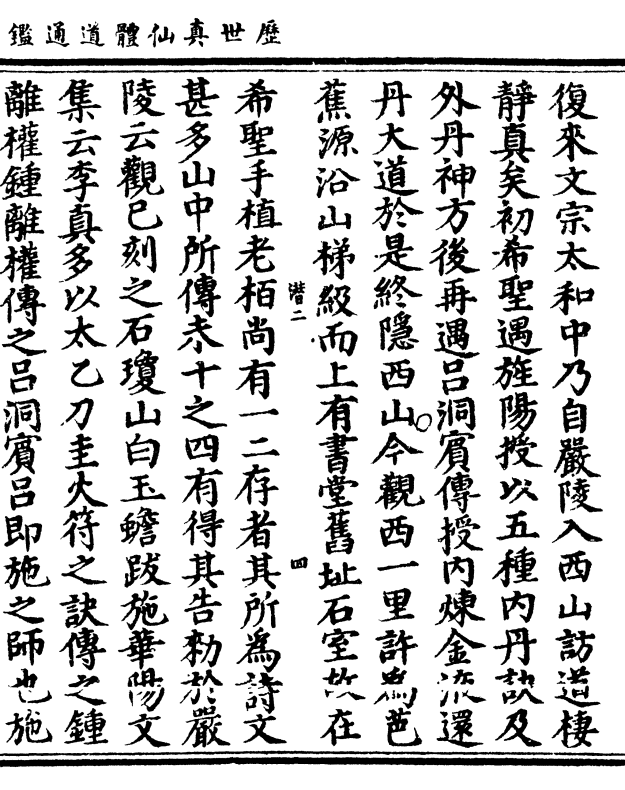 歷世真仙體道通鑑
復來文宗太和中乃自嚴陵入西山訪道棲
靜真矣初希聖遇旌陽授以五種內丹訣及
外丹神方後再遇吕洞賓傳授內煉金液還
丹大道於是終隱西山○今觀西一里許為芭
蕉源沿山梯級而上有書堂舊址石室故在
潜二
四
希聖手植老栢尚有一二存者其所為詩文
甚多山中所傳未十之四有得其告勑於嚴
陵云觀已刻之石瓊山白玉蟾跋施華陽文
集云李真多以太乙刀圭火符之訣傳之鍾
離權鍾離權傳之吕洞賓吕即施之師也施